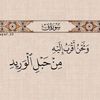 وَنَحْنُ أَقْرَبُ إِلَيْهِ
مِنْ حَبْلِ الْوَرِيدِ